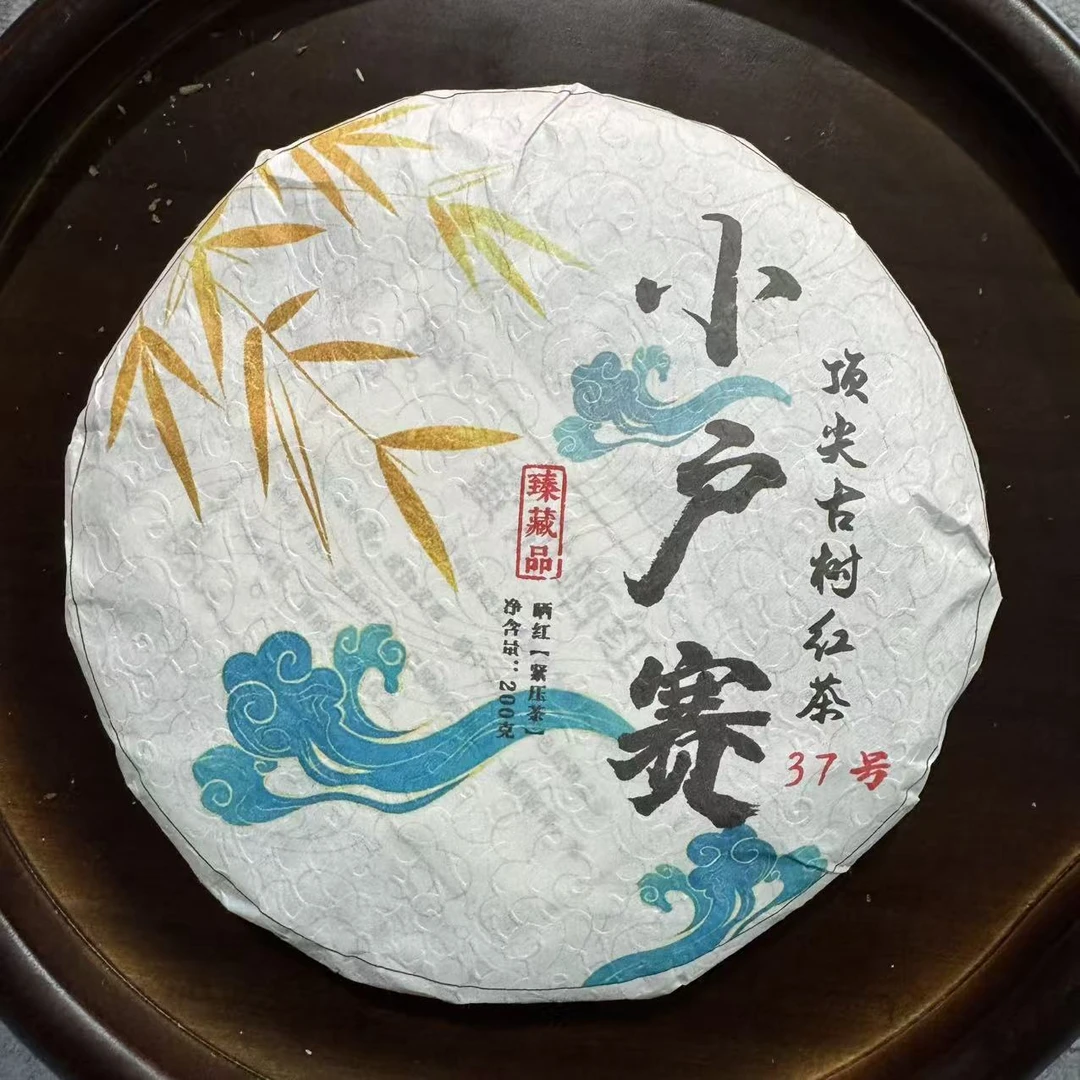 小户赛
顶尖古树红茶
37号
臻藏品
晒红【紧压茶】
净含量：200克